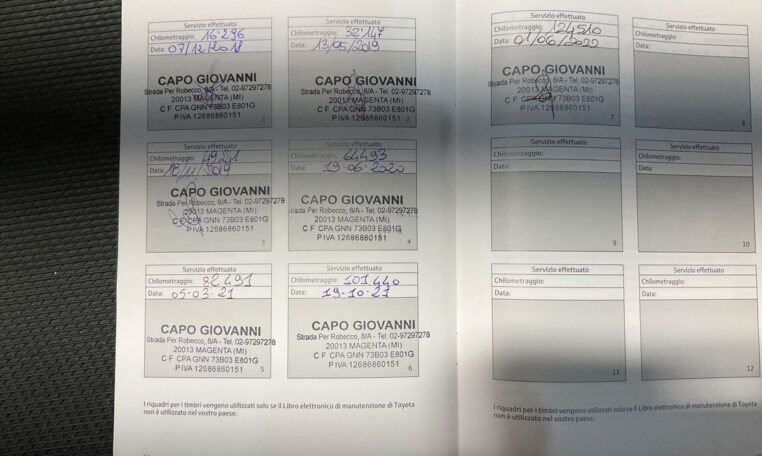 Servizio effettuato
Chilometraggio: 16'296
Data: 07/12/2018
CAPO GIOVANNI
Strada Per Robecco, 8/A - Tel. 02-97297278
20013 MAGENTA (MI)
C F CPA GNN 73B03 E801G
P IVA 12686860151
1
Servizio effettuato
Chilometraggio: 32'147
Data: 13/05/2019
CAPO GIOVANNI
Strada Per Robecco, 8/A - Tel. 02-97297278
20013 MAGENTA (MI)
C F CPA GNN 73B03 E801G
P IVA 12686860151
2
Servizio effettuato
Chilometraggio:
Data: 18/11/2019
CAPO GIOVANNI
Strada Per Robecco, 8/A - Tel. 02-97297278
20013 MAGENTA (MI)
C F CPA GNN 73B03 E801G
P IVA 12686860151
3
Servizio effettuato
Chilometraggio: 64493
Data: 19-06-2020
CAPO GIOVANNI
Strada Per Robecco, 8/A - Tel. 02-97297278
20013 MAGENTA (MI)
C F CPA GNN 73B03 E801G
P IVA 12686860151
4
Servizio effettuato
Chilometraggio: 82491
Data: 05-03-21
CAPO GIOVANNI
Strada Per Robecco, 8/A - Tel. 02-97297278
20013 MAGENTA (MI)
C F CPA GNN 73B03 E801G
P IVA 12686860151
5
Servizio effettuato
Chilometraggio: 101440
Data: 19-10-21
CAPO GIOVANNI
Strada Per Robecco, 8/A - Tel. 02-97297278
20013 MAGENTA (MI)
C F CPA GNN 73B03 E801G
P IVA 12686860151
6
I riquadri per i timbri vengono utilizzati solo se il Libro elettronico di manutenzione di Toyota
non è utilizzato nel vostro paese.
Servizio effettuato
Chilometraggio: 124510
Data: 01/06/2022
CAPO GIOVANNI
Strada Per Robecco, 8/A - Tel. 02-97297278
20013 MAGENTA (MI)
C F CPA GNN 73B03 E801G
P IVA 12686860151
7
Servizio effettuato
Chilometraggio:
Data:
8
Servizio effettuato
Chilometraggio:
Data:
9
Servizio effettuato
Chilometraggio:
Data:
10
Servizio effettuato
Chilometraggio:
Data:
11
Servizio effettuato
Chilometraggio:
Data:
12
I riquadri per i timbri vengono utilizzati solo se il Libro elettronico di manutenzione di Toyota
non è utilizzato nel vostro paese.